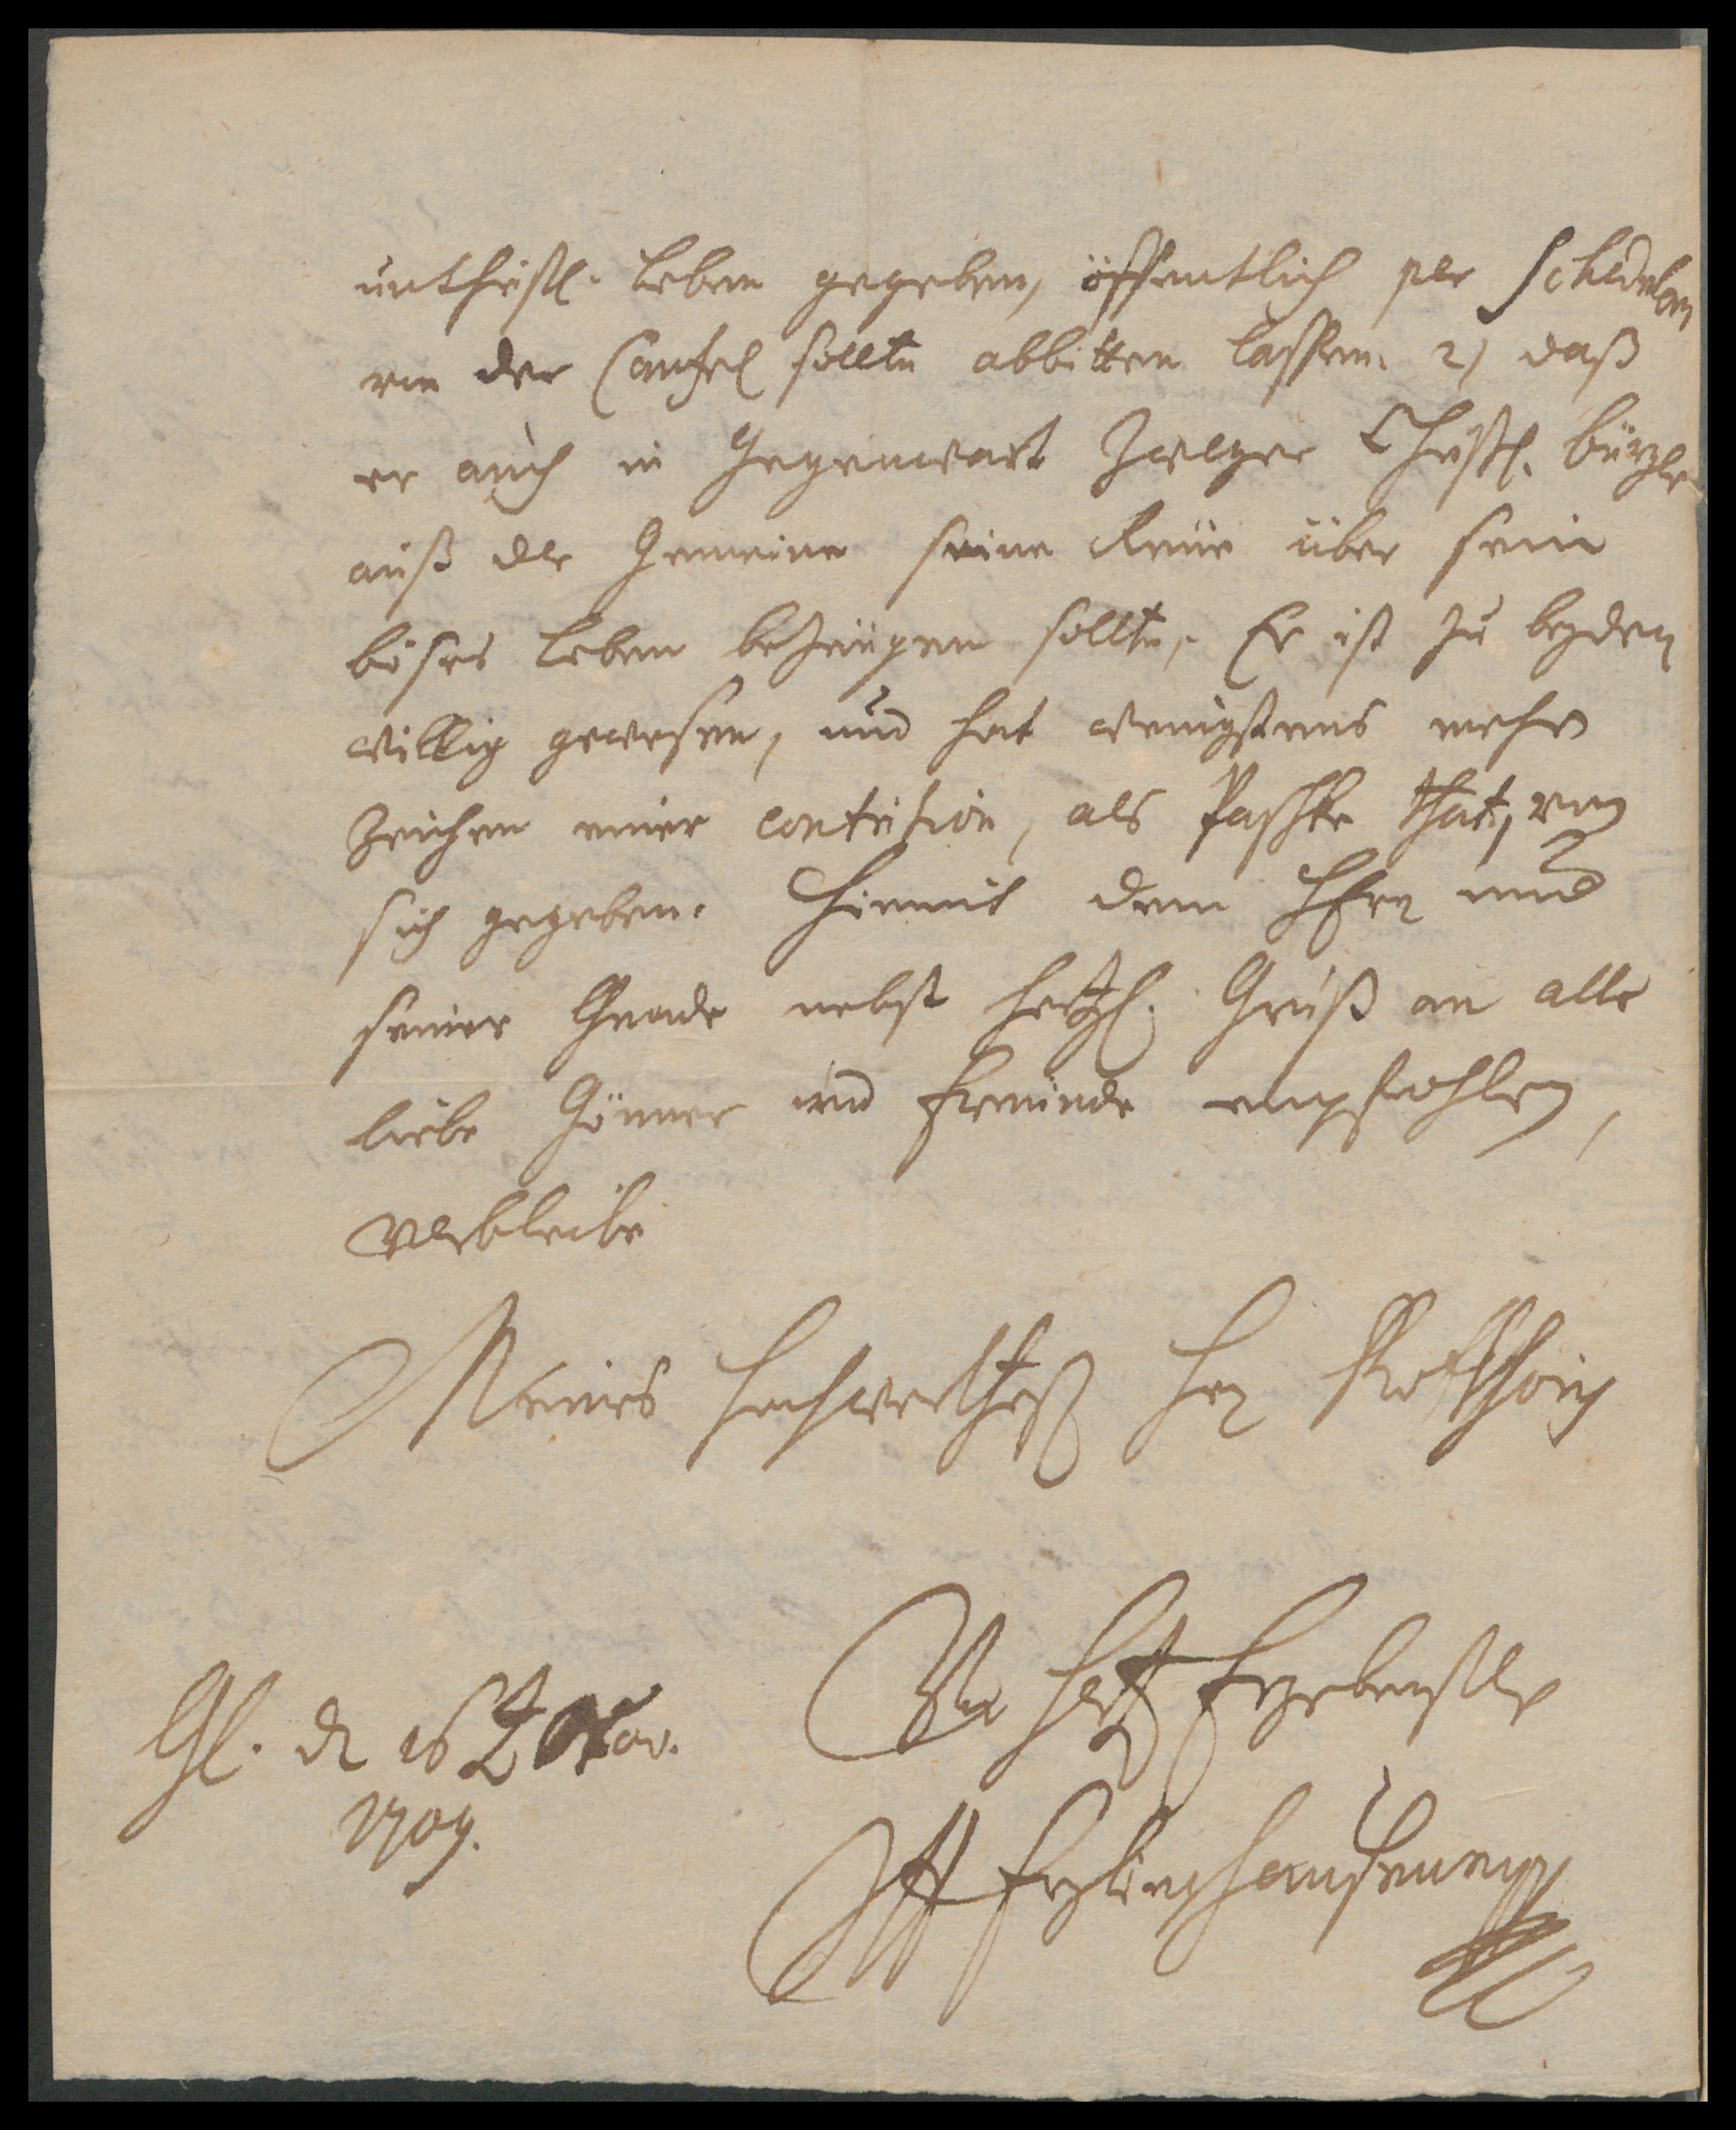 unchristl. leben gegeben, öffentlich per Schedulam
von der Cantzel sollte abbitten laßen. 2) daß
er auch in Gegenwart zweyer Christl. bürger
auß der Gemeine seine Reüe über sein
böses leben bezeügen sollte. Er ist zu beyden
willig gewesen, und hat wenigstens mehr
Zeichen einer contrition, als Paschke that, von
sich gegeben. Hiemit dem HErrn und
seiner Gnade nebst hertzl. Gruß an alle
liebe Gönner und Freünde empfohlen,
verbleibe
Meines Hochwerthest Herr
Gl. d 16 Nov.
1709.
Ergebenster
Freylinghausen